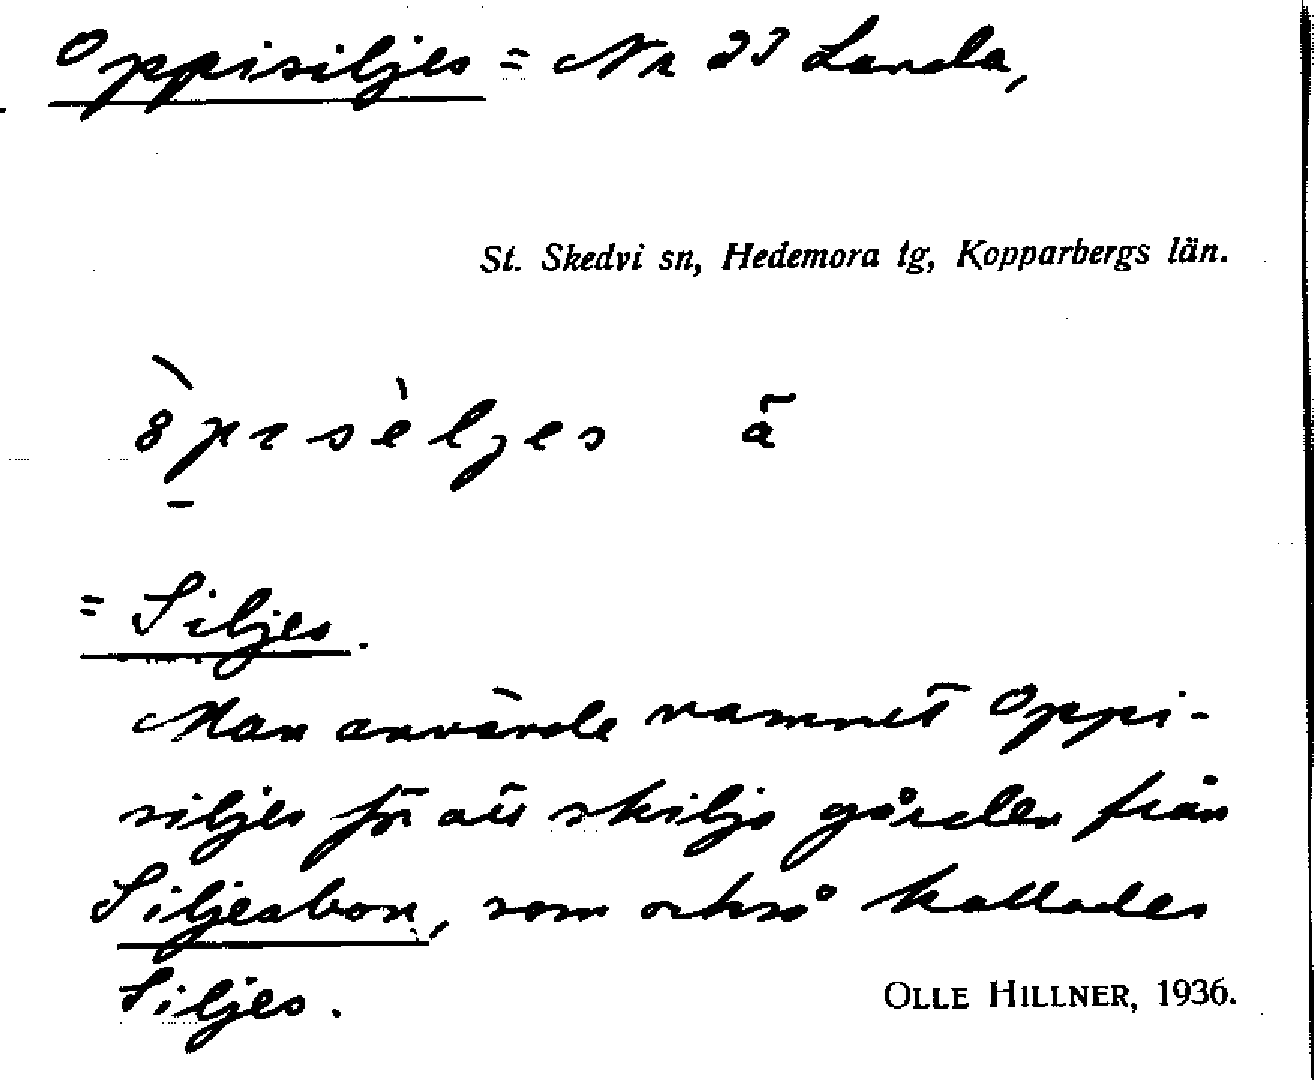 Oppisiljes = Nr 22 Landa,
St. Skedvi sn, Hedemora tg, Kopparbergs län.
= Siljes.
Man använde namnet Oppi-
siljes för att skilja gården från
Siljesbon, som också kallades
Siljes.
OLLE HILLNER, 1936.